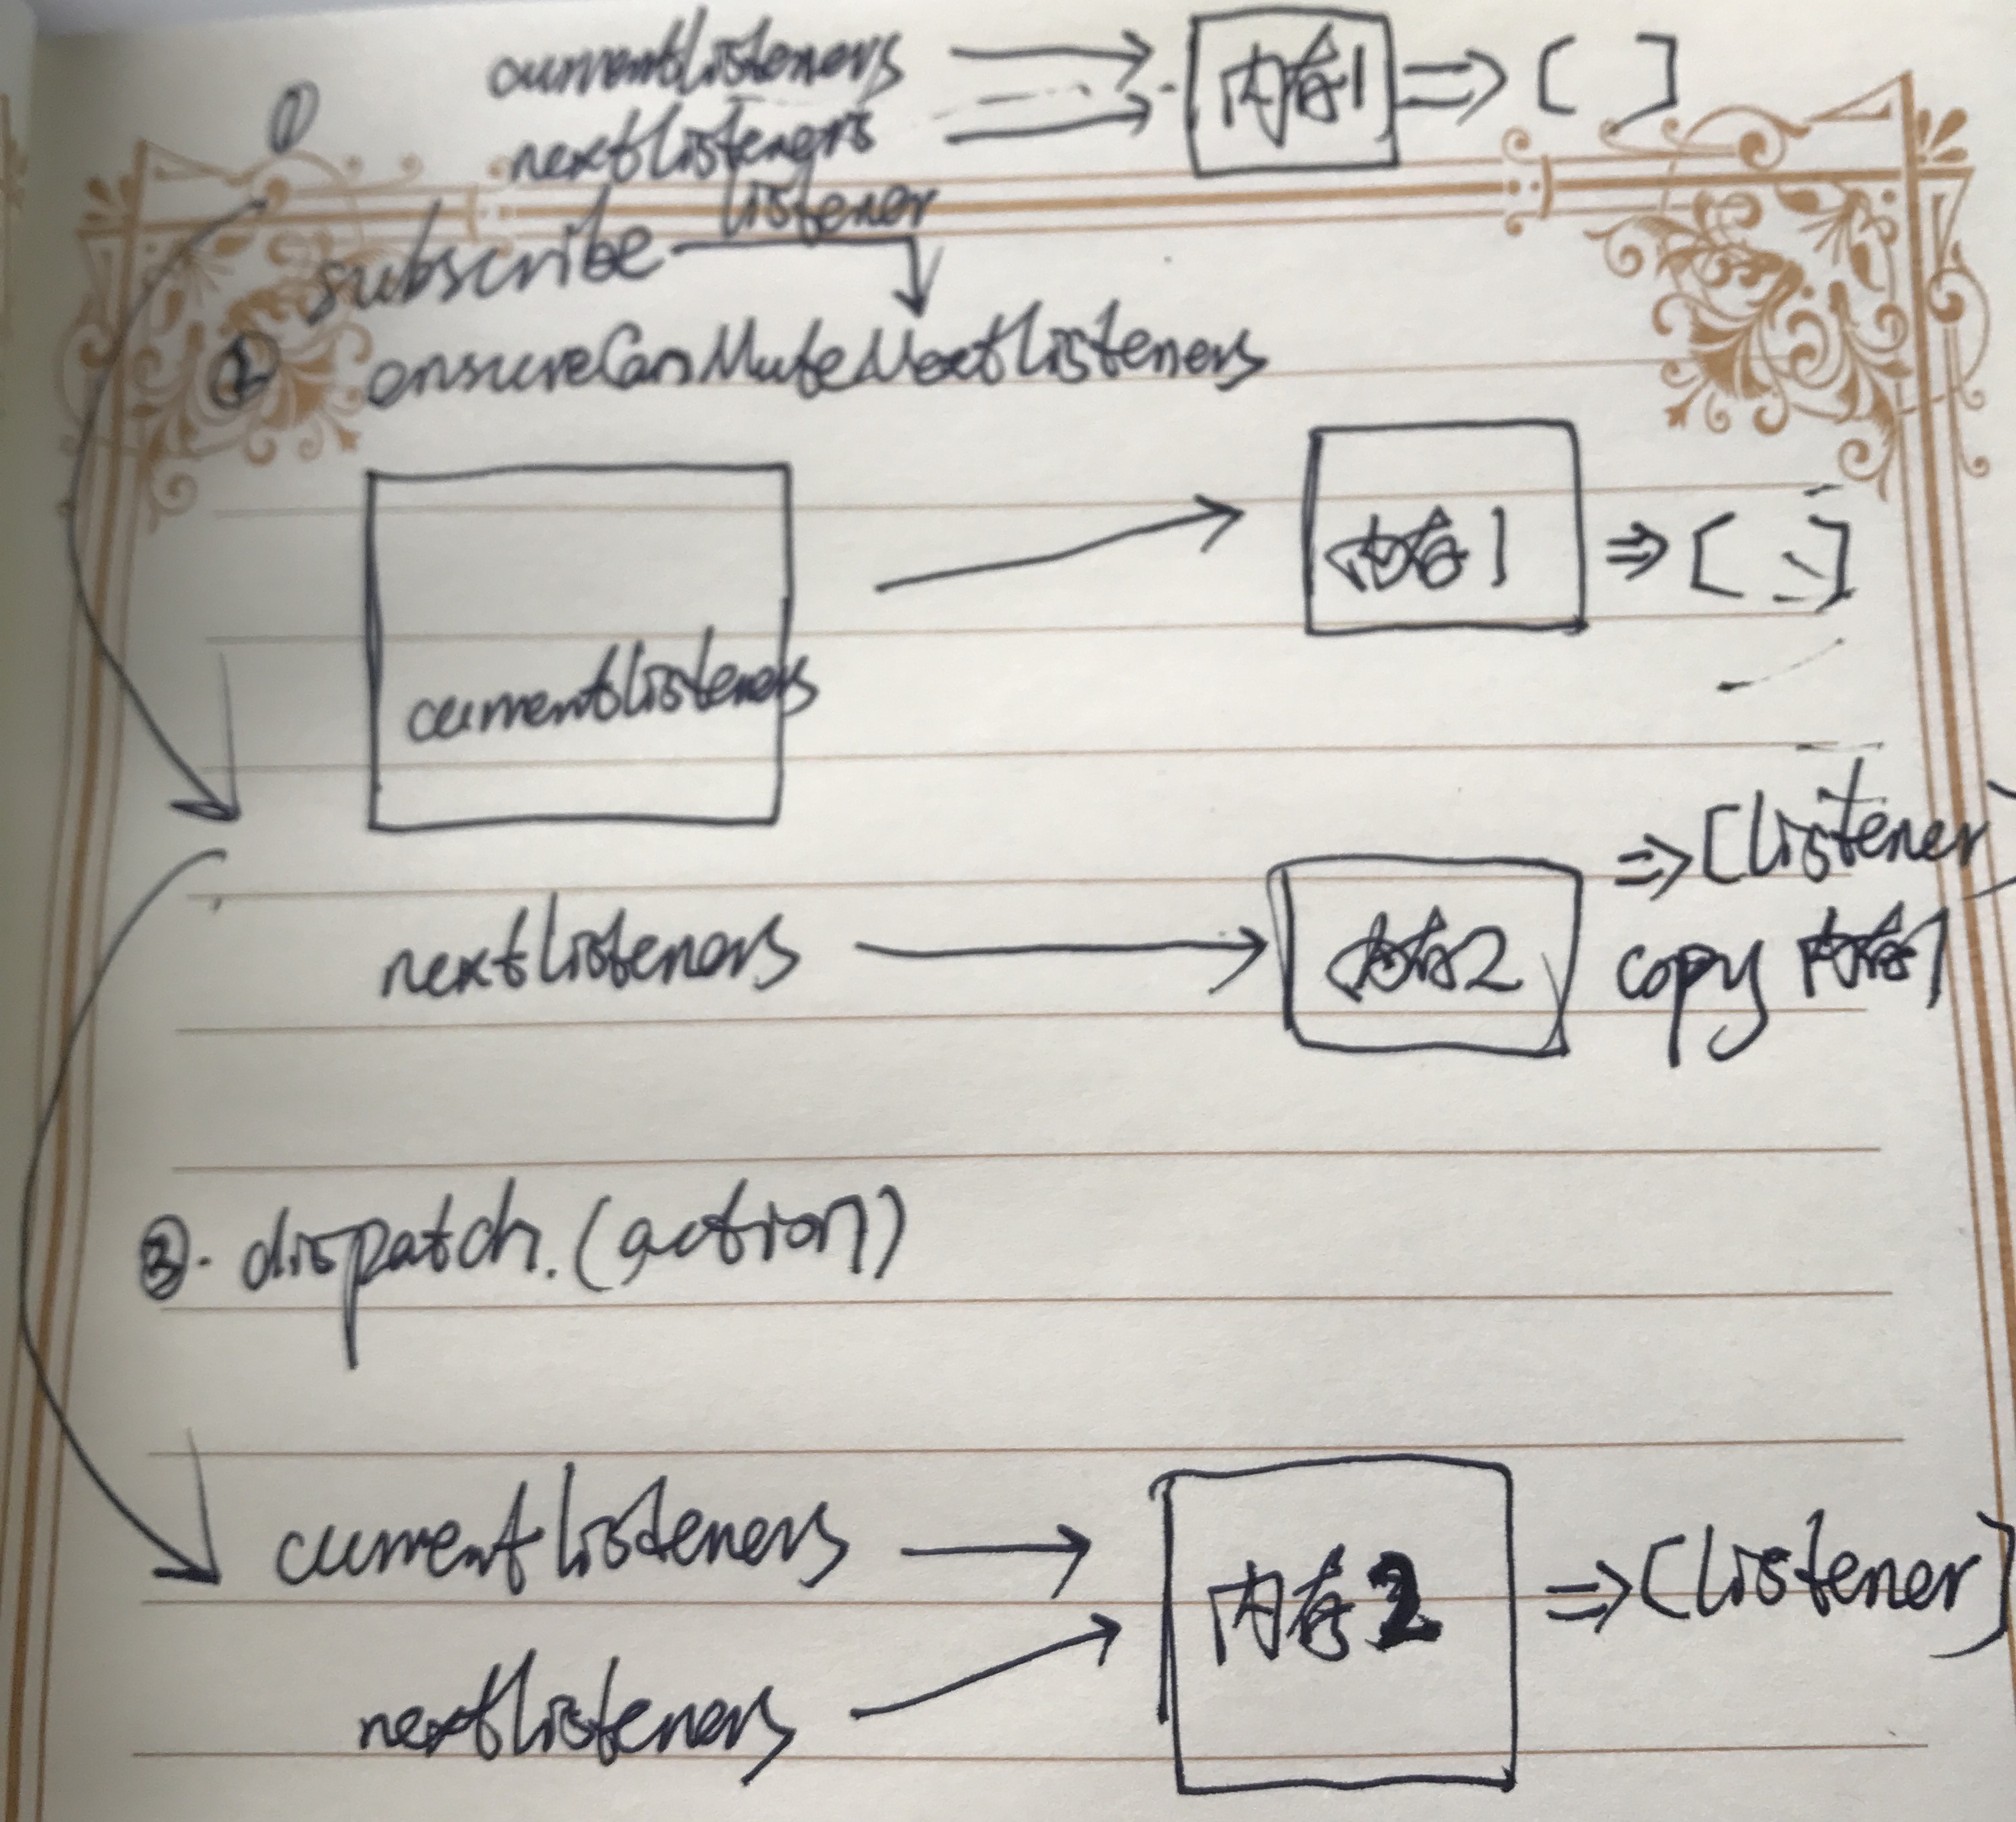 ① currentlisteners 内存1 ⇒ [ ]
nextlisteners
subscribe listener
② ensureCanMuteNextlisteners
内存1 ⇒ [ ]
currentlisteners
⇒ [listener]
nextlisteners 内存2 copy 内存1
③. dispatch.(action)
currentlisteners 内存2 ⇒ [listener]
nextlisteners